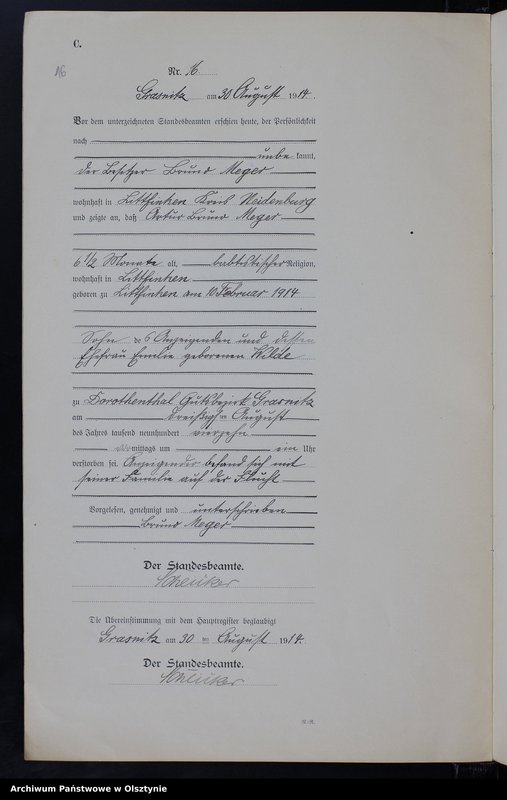 C.
16
Nr. 16
Grasnitz am 30 August 1914.
Vor dem unterzeichneten Standesbeamten erschien heute, der Persönlichkeit
nach
unbe kannt,
der Besitzer Bruno Meger
wohnhaft in Littfinken Kreis Neidenburg
und zeigte an, daß Artur Bruno Meger
6 1/2 Monate alt, babtistischer Religion,
wohnhaft in Littfinken
geboren zu Littfinken am 10 Februar 1914
Sohn des Anzeigenden und dessen
Ehefrau Emilie geborenen Wilde
zu Dorothenthal Gutsbezirk Grasnitz
am dreißigsten August
des Jahres tausend neunhundert vierzehn
mittags um ein Uhr
verstorben sei. Anzeigender befand sich mit
seiner Familie auf der Flucht
Vorgelesen, genehmigt und unterschrieben
Bruno Meger
Der Standesbeamte.
Die Übereinstimmung mit dem Hauptregister beglaubigt
Grasnitz am 30 ten August 1914.
Der Standesbeamte.
Archiwum Państwowe w Olsztynie